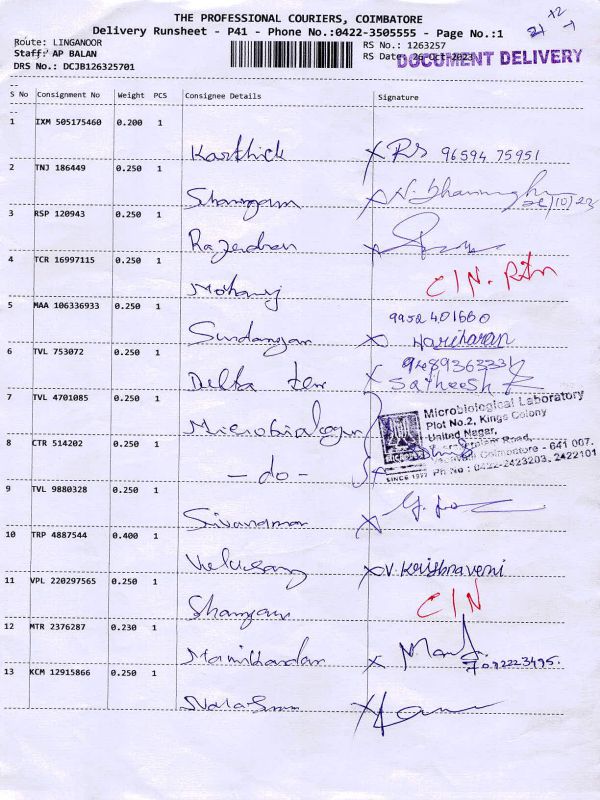 THE PROFESSIONAL COURIERS, COIMBATORE
Delivery Runsheet - P41 - Phone No.:0422-3505555 - Page No.:1
Route: LINGANOOR
Staff: AP BALAN
DRS No.: DCJB126325701
RS No.: 1263257
RS Date: 26-Oct-2023
DOCUMENT DELIVERY
S No Consignment No Weight PCS Consignee Details Signature
1 IXM 505175460 0.200 1
Karthick Rs 96594 75951
2 TNJ 186449 0.250 1
Shanugam
3 RSP 120943 0.250 1
Rajendran
4 TCR 16997115 0.250 1
C/N. Rtn
5 MAA 106336933 0.250 1
9952401660
Hariharan
6 TVL 753072 0.250 1
Delta Satheesh
7 TVL 4701085 0.250 1
Microbiological Laboratory
Plot No.2, Kings Colony
United Nagar,
8 CTR 514202 0.250 1
- do -
Coimbatore - 641 007.
SINCE 1977 Ph No : 0422-2423203, 2422101
9 TVL 9880328 0.250 1
10 TRP 4887544 0.400 1
V. Krishnaveni
11 VPL 220297565 0.250 1
C/N
12 MTR 2376287 0.230 1
Manikandan
7092223495.
13 KCM 12915866 0.250 1